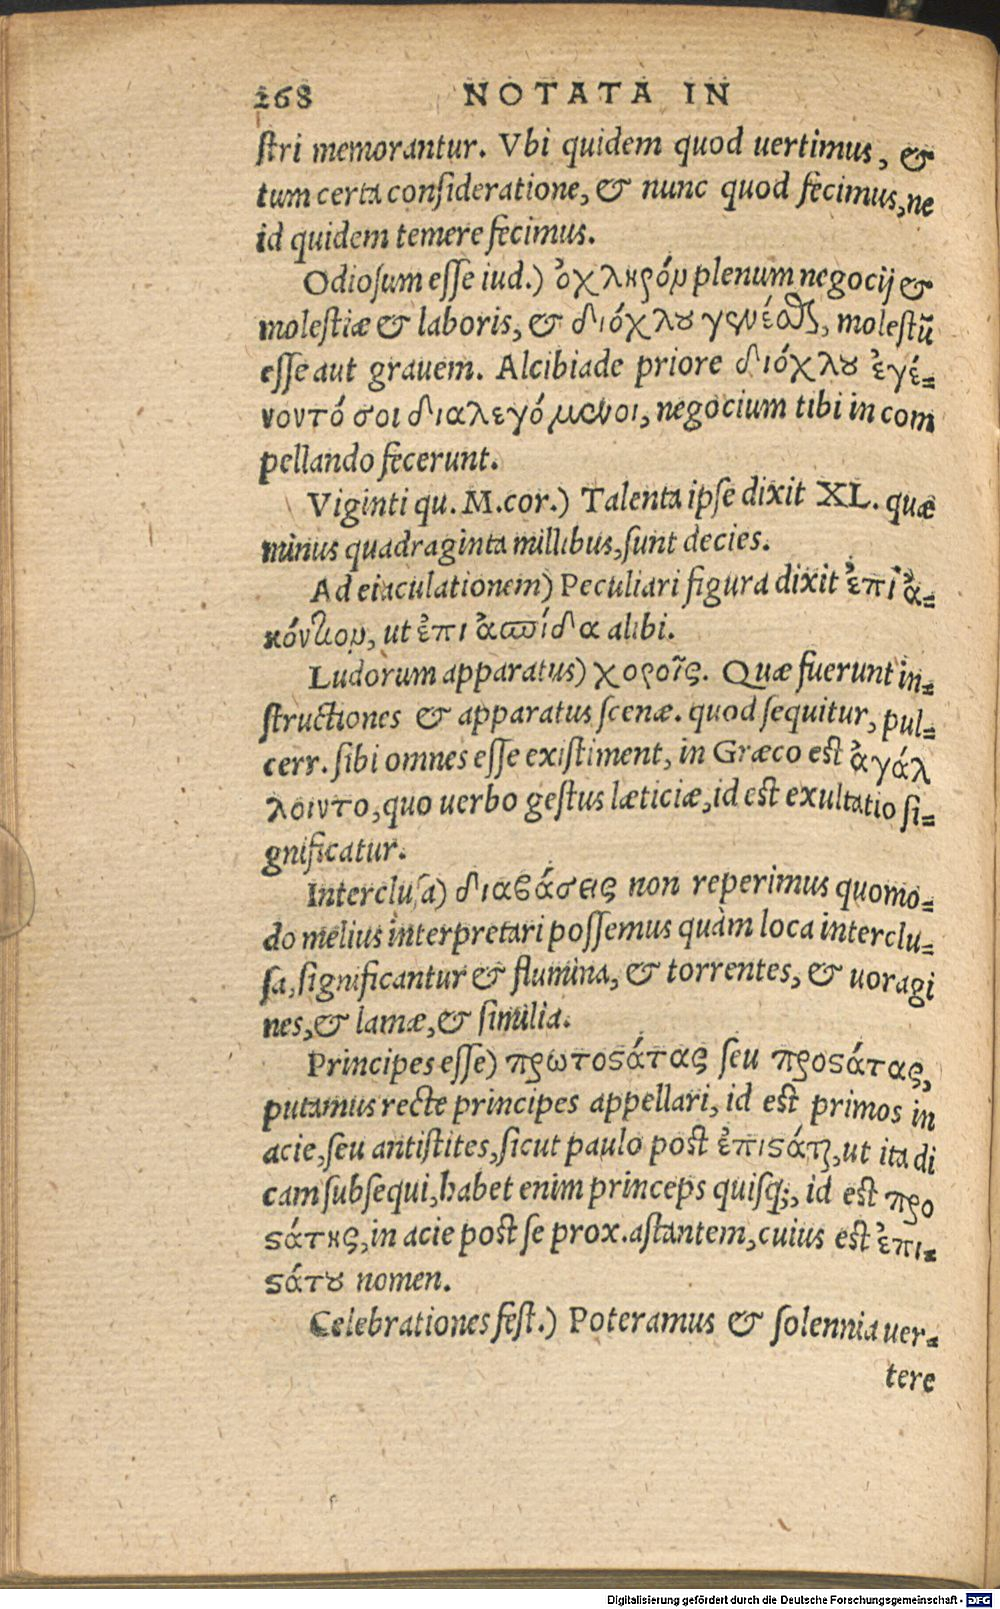 268 NOTATA IN
stri memorantur. Vbi quidem quod uertimus, &
tum certa consideratione, & nunc quod fecimus, ne
id quidem temere fecimus.
Odiosum esse iud.) ὀχληρόν plenum negocij &
molestiæ & laboris, & διόχλου γενέσθαι, molestū
esse aut grauem. Alcibiade priore διόχλου ἐγέ-
νοντό σοι διαλεγόμενοι, negocium tibi in com
pellando fecerunt.
Viginti qu. M. cor.) Talenta ipse dixit XL. quæ
minus quadraginta millibus, sunt decies.
Ad eiaculationem) Peculiari figura dixit ἐπὶ ἀ-
κόντιον, ut ἐπι ἀσπίδα alibi.
Ludorum apparatus) χοροῖς. Quæ fuerunt in-
structiones & apparatus scenæ. quod sequitur, pul-
cerr. sibi omnes esse existiment, in Græco est ἀγάλ
λοιντο, quo uerbo gestus læticiæ, id est exultatio si-
gnificatur.
Interclusa) διαβάσεις non reperimus quomo-
do melius interpretari possemus quàm loca interclu-
sa, significantur & flumina, & torrentes, & uoragi
nes, & lamæ, & similia.
Principes esse) πρωτοϛάτας seu προϛάτας,
putamus recte principes appellari, id est primos in
acie, seu antistites, sicut paulo post ἐπιϛάται, ut ita di
cam subsequi, habet enim princeps quisq;, id est προ
ϛάτης, in acie post se prox. astantem, cuius est ἐπι-
ϛάτου nomen.
Celebrationes fest.) Poteramus & solennia uer-
tere
Digitalisierung gefördert durch die Deutsche Forschungsgemeinschaft - DFG